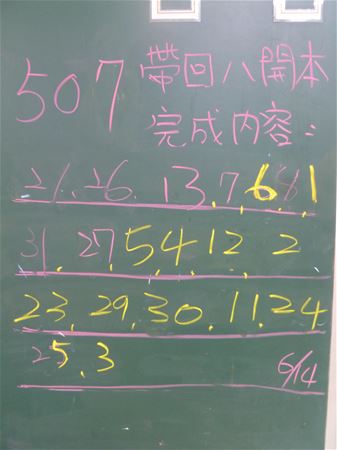 507 帶回八開本
完成內容：
21. 26. 13. 7. 6. 8. 1
31. 27. 5. 4. 12. 2
23. 29. 30. 11. 24
25. 3
6/14